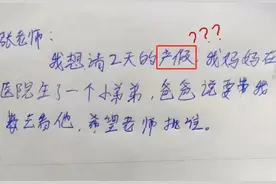 张老师：
???
我想请2天的产假 我妈妈在
医院生了一个小弟弟，爸爸说要带我
去看他，希望老师批准。